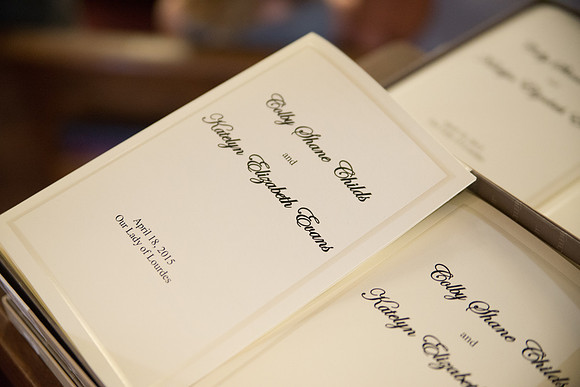 Colby Shane Childs
and
Katelyn Elizabeth Evans
April 18, 2015
Our Lady of Lourdes
Colby Shane Childs
and
Katelyn Elizabeth